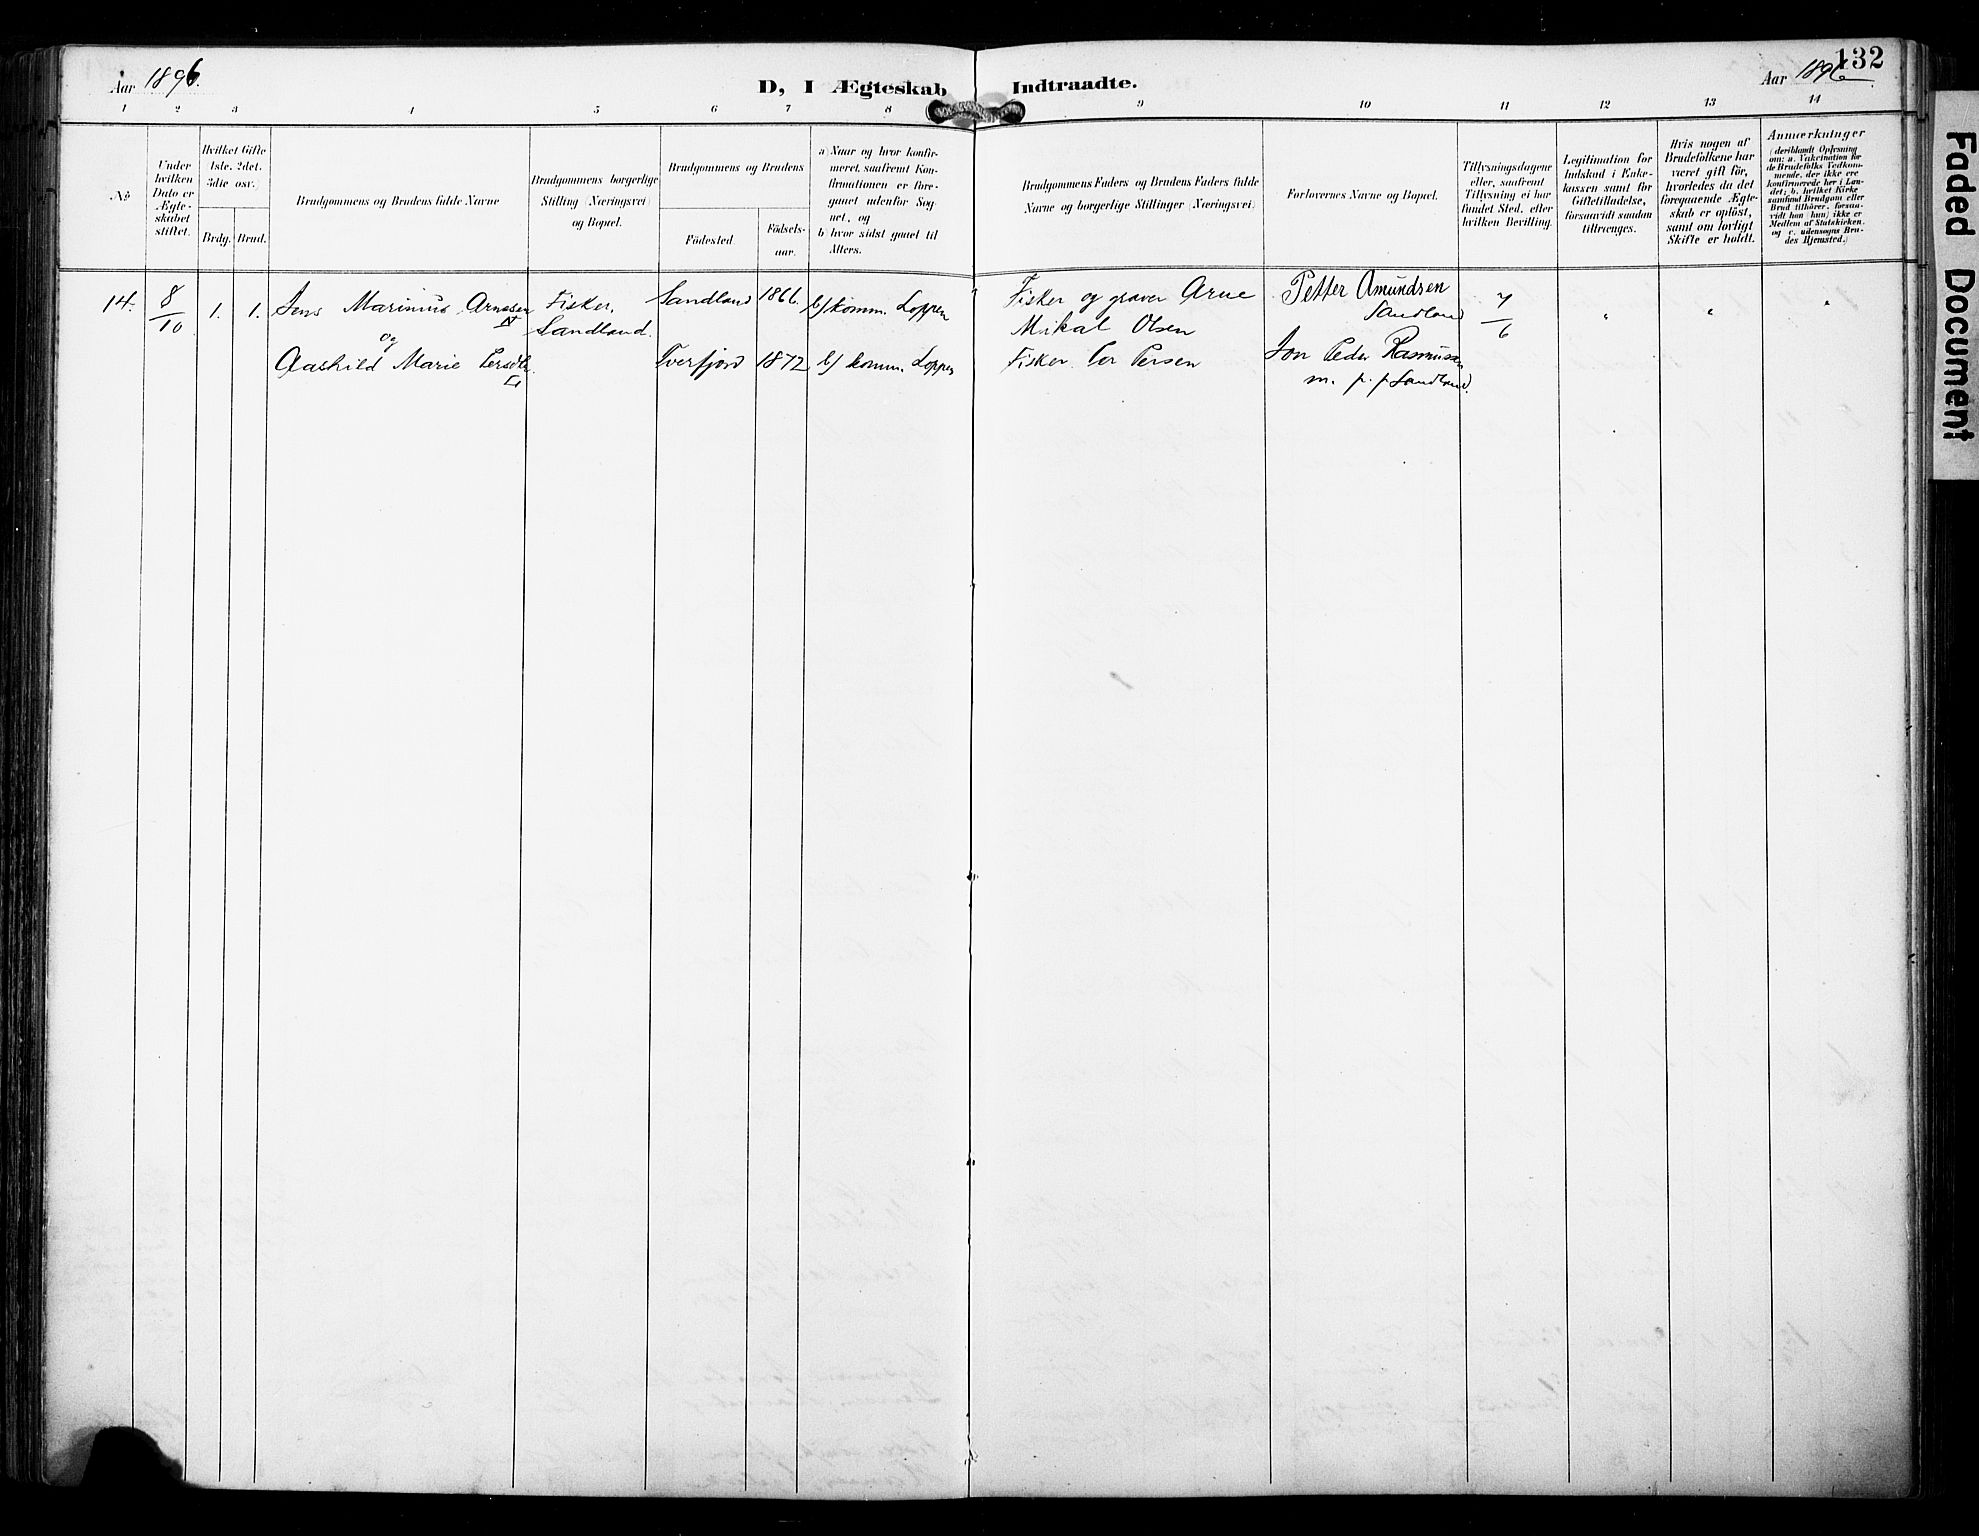 132
Aar 1896.
D, I Ægteskab Indtraadte.
Aar 1896
1 2 3 4 5 6 7 8 9 10 11 12 13 14
No
Under
hvilken
Dato er
Ægte-
skabet
stiftet.
Hvilket Gifte
1ste. 2det.
3die osv.
Brdg. Brud.
Brudgommens og Brudens fulde Navne
Brudgommens borgerlige
Stilling (Næringsvei)
og Bopæl.
Brudgommens og Brudens
Födested.
Födsels-
aar.
a) Naar og hvor konfir-
meret, saafremt Kon-
firmationen er fore-
gaaet udenfor Sog-
net, og
b) hvor sidst gaaet til
Alters.
Brudgommens Faders og Brudens Faders fulde
Navne og borgerlige Stillinger (Næringsvei)
Forlovernes Navne og Bopæl.
Tillysningsdagene
eller, saafremt
Tillysning ei har
fundet Sted, efter
hvilken Bevilling.
Legitimation for
Indskud i Enke-
kassen samt for
Giftetilladelse,
forsaavidt saadan
tiltrænges.
Hvis nogen af
Brudefolkene har
været gift för,
hvorledes da det
foregaaende Ægte-
skab er oplöst,
samt om lovligt
Skifte er holdt.
Anmærkninger
(deriblandt Oplysning
om: a. Vakcination for
de Brudefolks Vedkom-
mende, der ikke ere
konfirmerede her i Lan-
det; b. hvilket Kirke
samfund Brudgom eller
Brud tilhörer, forsaa-
vidt han (hun) ikke er
Medlem af Statskirken,
og c. udensogns Bru-
des Hjemsted.)
14. 8/10 1. 1. Jens Marinius Arnesen Fisker, Sandland 1866. b) komm. Loppen Fisker og graver Arne Petter Amundsen 7/6 " " "
IV Sandland. Mikal Olsen Sandland
og
Aashild Marie Persdtr. Tverfjord 1872 b) komm. Loppen Fisker Per Persen Jon Peder Rasmussen
m. p. p. Sandland.
Faded Document